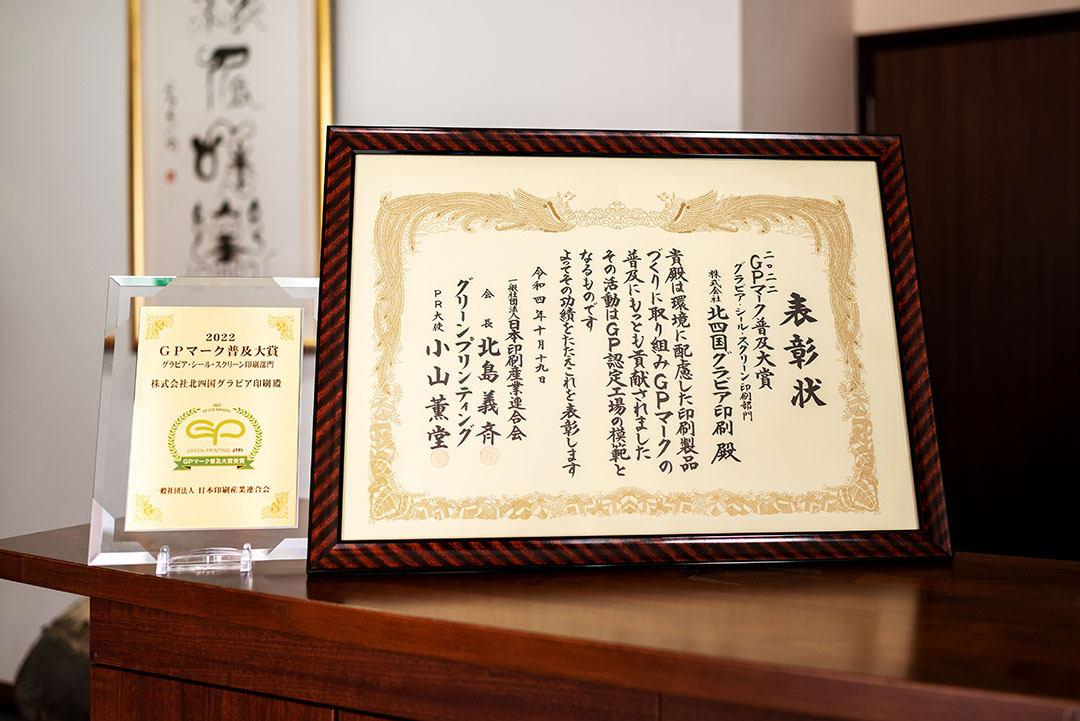 表彰状
二〇二二
GPマーク普及大賞
グラビア・シール・スクリーン印刷部門
株式会社北四国グラビア印刷 殿
貴殿は環境に配慮した印刷製品
づくりに取り組みGPマークの
普及にもっとも貢献されました
その活動はGP認定工場の模範と
なるものです
よってその功績をたたえこれを表彰します
令和四年十月十九日
一般社団法人日本印刷産業連合会
会長 北島義斉
グリーンプリンティング
PR大使 小山薫堂
2022
GPマーク普及大賞
グラビア・シール・スクリーン印刷部門
株式会社北四国グラビア印刷殿
2022
GP
GREEN PRINTING JFPI
GPマーク普及大賞受賞
一般社団法人 日本印刷産業連合会